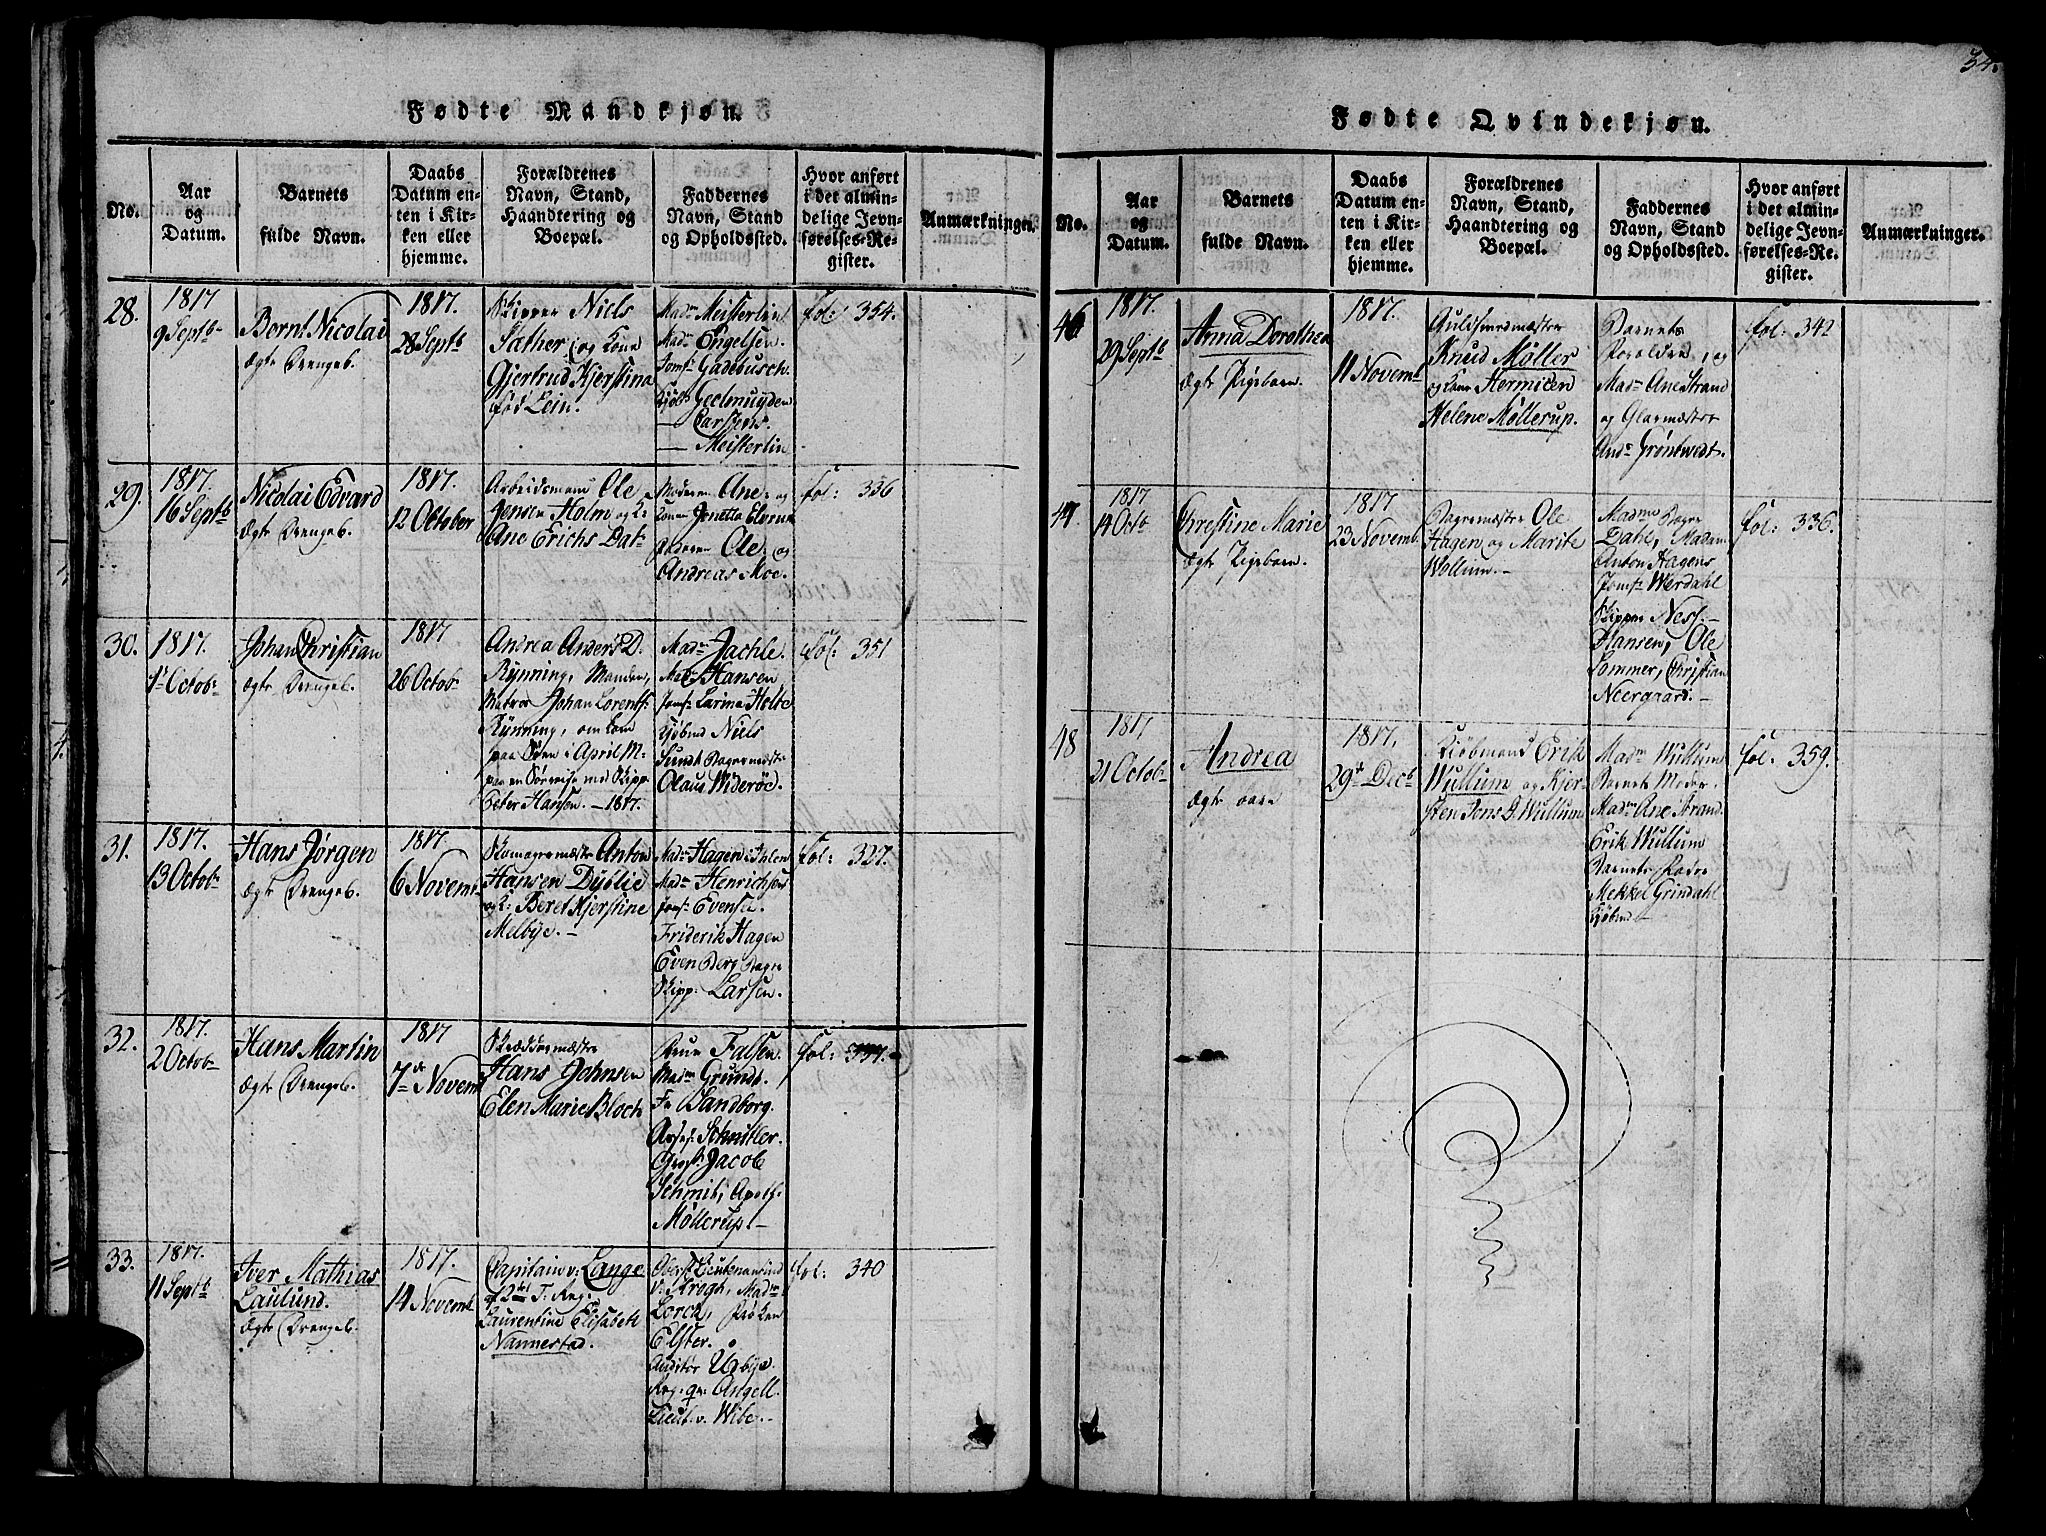 34.
Fødte Mandkjøn.
No.
Aar
og
Datum.
Barnets
fulde Navn.
Daabs
Datum en-
ten i Kir-
ken eller
hjemme.
Forældrenes
Navn, Stand,
Haandtering og
Boepæl.
Faddernes
Navn, Stand
og Opholdssted.
Hvor anført
i det almin-
delige Jevn-
førelses-Re-
gister.
Anmærkninger.
28.
1817
9 Septb
Bernt Nicolai
ægte Drengeb.
1817.
28 Septb
Skipper Niels
Sather og Kone
Gjertrud Kjerstina
fød Lein.
Madm Meisterlin
Madm Engelsen.
Jomf. Gadebusch.
Kjøb: Geelmuyden
— Carstens.
— Meisterlin
fol: 354.
29.
1817.
16 Septb
Nicolai Edvard
ægte Drengeb.
1817.
12 October
Arbeidsmand Ole
Jensen Holm og K:
Ane Erichs Dat:
Moderen Ane: og
Konen Jenetta Elverum
Faderen Ole, og
Andreas Moe.
fol: 336
30.
1817.
1 Octob
Johan Christian
ægte Drengeb.
1817
26 Octob
Andrea Anders D.
Rynning, Manden,
Matros Johan Lorents
Rynning, om kom
paa Søen i April M:
paa en Søereise med Skipp:
Peter Hansen. — 1817.
Madm Jachle.
Madm Hansen
Jomf: Larina Holte
Kjøbmd Niels
Sundt Bagermester
Olaus Widerøe.
fol: 351
31.
1817.
13 Octob
Hans Jørgen
ægte Drengeb.
1817.
6 Novemb
Skomagermæster Anton
Hansen Dyblie
og K: Beret Kjerstine
Melbye. —
Madm Hagen i Ihlen
Madm Henrichsen
Jomf: Evense.
Friderik Hagen
Even Berg Bager
Skipp: Larsen.
fol: 327.
32.
1817.
2 Octob
Hans Martin
ægte Drengeb.
1817
7de Novemb
Skræddermæster
Hans Johnsen
Elen Marie Bloch
Frue Falsen.
Madm Grundt.
Fr Sandborg.
Asses: Schnitler.
Gross: Jacob
Schmit, Apoth:
Møllerup. —
fol: 337.
33.
1817.
11 Septb
Iver Mathias
Laulund.
ægte Drengeb.
1817.
14 Novemb
Capitain v: Lange
af 2det T. Reg:
Laurentine Elisabeth
Nannestad.
Oberst Lieutenantind
v: Krogh, Madm
Lorck, Frøken
Elster.
Auditør Urbye.
Reg: qr: Angell.
Lieut. v. Wibe. —
fol: 340
Fødte Qvindekjøn.
No.
Aar
og
Datum.
Barnets
fulde Navn.
Daabs
Datum en-
ten i Kir-
ken eller
hjemme.
Forældrenes
Navn, Stand,
Haandtering og
Boepæl.
Faddernes
Navn, Stand
og Opholdssted.
Hvor anført
i det almin-
delige Jevn-
førelses-Re-
gister.
Anmærkninger.
46
1817.
29 Septb
Anna Dorothea
ægte Pigebarn.
1817.
11 Novemb
Guldsmedmæster
Knud Møller
og Kone Hermicen
Helene Møllerup.
Barnets
Forældre, og
Madm Ane Strand
og Glarmæster
And: Grøntwedt.
fol: 342
47
1817
14 Octb
Chrestine Marie
ægte Pigebarn.
1817
23 Novemb.
Bagermæster Ole
Hagen og Marite
Wollum. —
Madme Bager
Dahl, Madam
Anton Hagens
Jomf: Werdahl
Skipper Ness. —
Hansen, Ole
Sommer, Christian
Neergaard. —
fol: 336.
48
1817
21 Octob
Andrea
ægte
1817.
29de Decb
Kjøbmand Erik
Wullum og Kjer-
sten Jons D. Wullum
Madm Wullum
Barnets Moder.
Madm Ane Strand.
Erik Wullum
Barnets Fader
Mekkel Grindahl
Kjøbmd —
fol: 359.